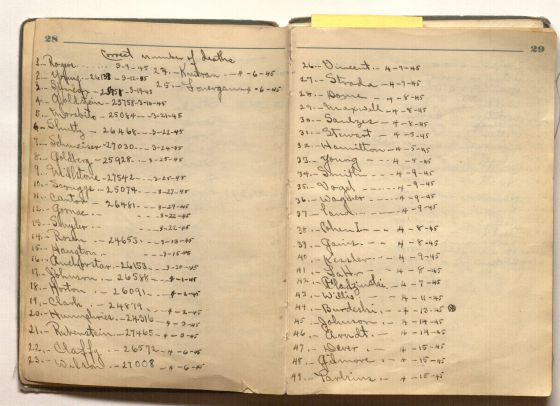 28
Correct number of deaths
1. Rogers 3-9-45
2. Young 26138 -3-12-45
3. -3-14-45
4. Goldstein -23758-3-20-45
5. Morabito -25084 - -3-21-45
6. Shultz - 26468 -3-22-45
7. Schmeiser -27030 - - -3-24-45
8. Goldberg -25928 - -3-25-45
9. Millstone -27542 - - -3-25-45
10. Scruggs - 25074 - - -3-27-45
11. Cantor 26481 - - -3-29-45
12. - -3-22-45
13. Shyler -3-22-45
14. Rosen - 24653 - - -3-13-45
15. Haugton - -3-15-45
16. -26153 - -3-20-45
17. Johnson - 26588 - -4-1-45
18. Horton - 26091 - - -4-2-45
19. Clark - 24879 - -4-2-45
20. Humphries -24316 - -4-3-45
21. Rubenstein -27465 -4-3-45
22. Claffy - 26572 -4-6-45
23. Wilson -27008 -4-6-45
24. -4-6-45
25. -6-45
29
26. Vincent - 4-7-45
27. Strada - 4-7-45
28. - 4-8-45
29. Maxwell - 4-8-45
30. - 4-8-45
31. Stewart - 4-5-45
32. Hamilton -4-5-45
33. Young - - -4-9-45
34. Smith - - -4-9-45
35. Vogel - - -4-9-45
36. Wagner - - -4-9-45
37. - -4-9-45
38. - 4-8-45
39. - 4-8-45
40. Kessler - 4-9-45
41. - 4-8-45
42. - 4-7-45
43. Willis - 4-11-45
44. Burdeski - 4-13-45
45. Johnson - 4-14-45
46. - 4-14-45
47. Wever - 4-15-45
48. Gilmore - 4-15-45
49. - 4-15-45